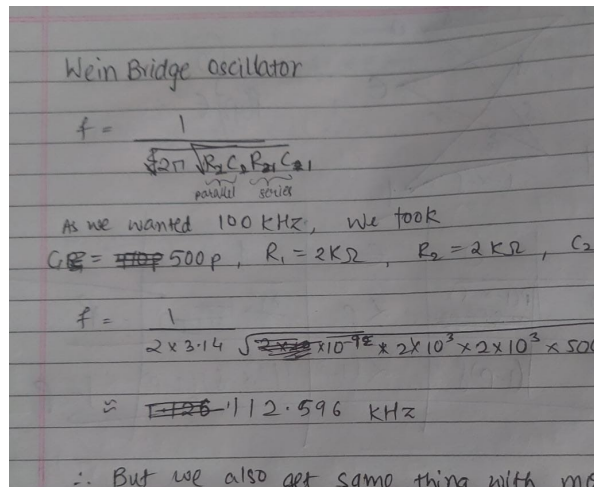 Wein Bridge oscillator
f = 1
2π √R₂C₂R₁C₁
parallel series
As we wanted 100 KHz, we took
C₁ = 500p, R₁ = 2KΩ, R₂ = 2KΩ, C₂
f = 1
2 × 3.14 √ ×10⁻¹² * 2×10³ × 2×10³ × 500
≈ 112.596 KHz
∴ But we also get same thing with